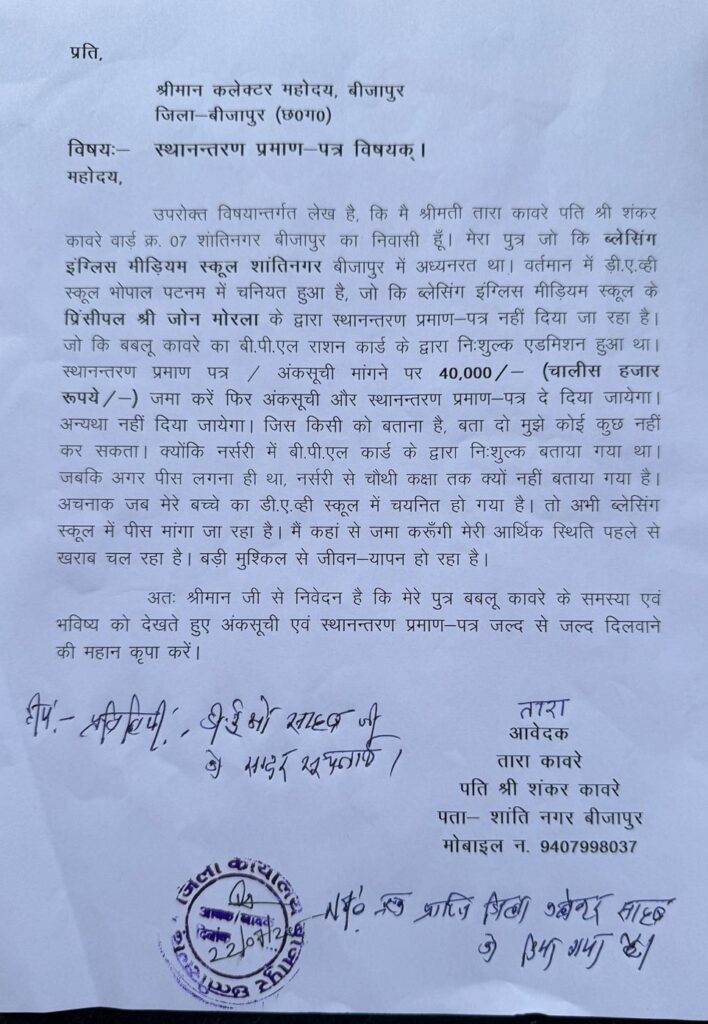 प्रति,
श्रीमान कलेक्टर महोदय, बीजापुर
जिला–बीजापुर (छ0ग0)
विषयः– स्थानन्तरण प्रमाण–पत्र विषयक्।
महोदय,
उपरोक्त विषयान्तर्गत लेख है, कि मै श्रीमती तारा कावरे पति श्री शंकर
कावरे वार्ड क्र. 07 शांतिनगर बीजापुर का निवासी हूँ। मेरा पुत्र जो कि ब्लेसिंग
इंग्लिस मीड़ियम स्कूल शांतिनगर बीजापुर में अध्यनरत था। वर्तमान में ड़ी.ए.व्ही
स्कूल भोपाल पटनम में चनियत हुआ है, जो कि ब्लेसिंग इंग्लिस मीड़ियम स्कूल के
प्रिंसीपल श्री जोन मोरला के द्वारा स्थानन्तरण प्रमाण–पत्र नहीं दिया जा रहा है।
जो कि बबलू कावरे का बी.पी.एल राशन कार्ड के द्वारा निःशुल्क एडमिशन हुआ था।
स्थानन्तरण प्रमाण पत्र / अंकसूची मांगने पर 40,000/– (चालीस हजार
रूपये/–) जमा करें फिर अंकसूची और स्थानन्तरण प्रमाण–पत्र दे दिया जायेगा।
अन्यथा नहीं दिया जायेगा। जिस किसी को बताना है, बता दो मुझे कोई कुछ नहीं
कर सकता। क्योंकि नर्सरी में बी.पी.एल कार्ड के द्वारा निःशुल्क बताया गया था।
जबकि अगर पीस लगना ही था, नर्सरी से चौथी कक्षा तक क्यों नहीं बताया गया है।
अचानक जब मेरे बच्चे का डी.ए.व्ही स्कूल में चयनित हो गया है। तो अभी ब्लेसिंग
स्कूल में पीस मांगा जा रहा है। मैं कहां से जमा करूँगी मेरी आर्थिक स्थिति पहले से
खराब चल रहा है। बड़ी मुश्किल से जीवन–यापन हो रहा है।
अतः श्रीमान जी से निवेदन है कि मेरे पुत्र बबलू कावरे के समस्या एवं
भविष्य को देखते हुए अंकसूची एवं स्थानन्तरण प्रमाण–पत्र जल्द से जल्द दिलवाने
की महान कृपा करें।
तारा
आवेदक
तारा कावरे
पति श्री शंकर कावरे
पता– शांति नगर बीजापुर
मोबाइल न. 9407998037
प्रतिलिपी. डी.ई.ओ साहब जी
को सादर सूचनार्थ।
जिला कार्यालय बीजापुर छत्तीसगढ़
दिनांक
जिला कलेक्टर साहब
को दिया गया है।